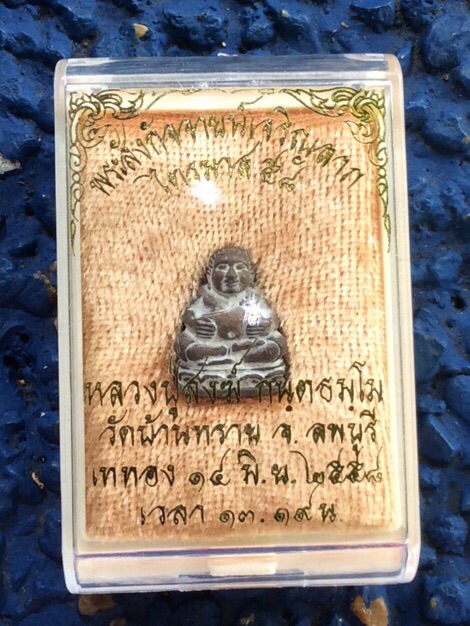 พระสังกัจจายน์เจริญลาภ
ไตรมาส ๕๘
หลวงปู่สงฆ์ กนฺตธมฺโม
วัดบ้านทราย จ. ลพบุรี
เททอง ๑๔ มิ.ย. ๒๕๕๘
เวลา ๑๓.๑๙ น.